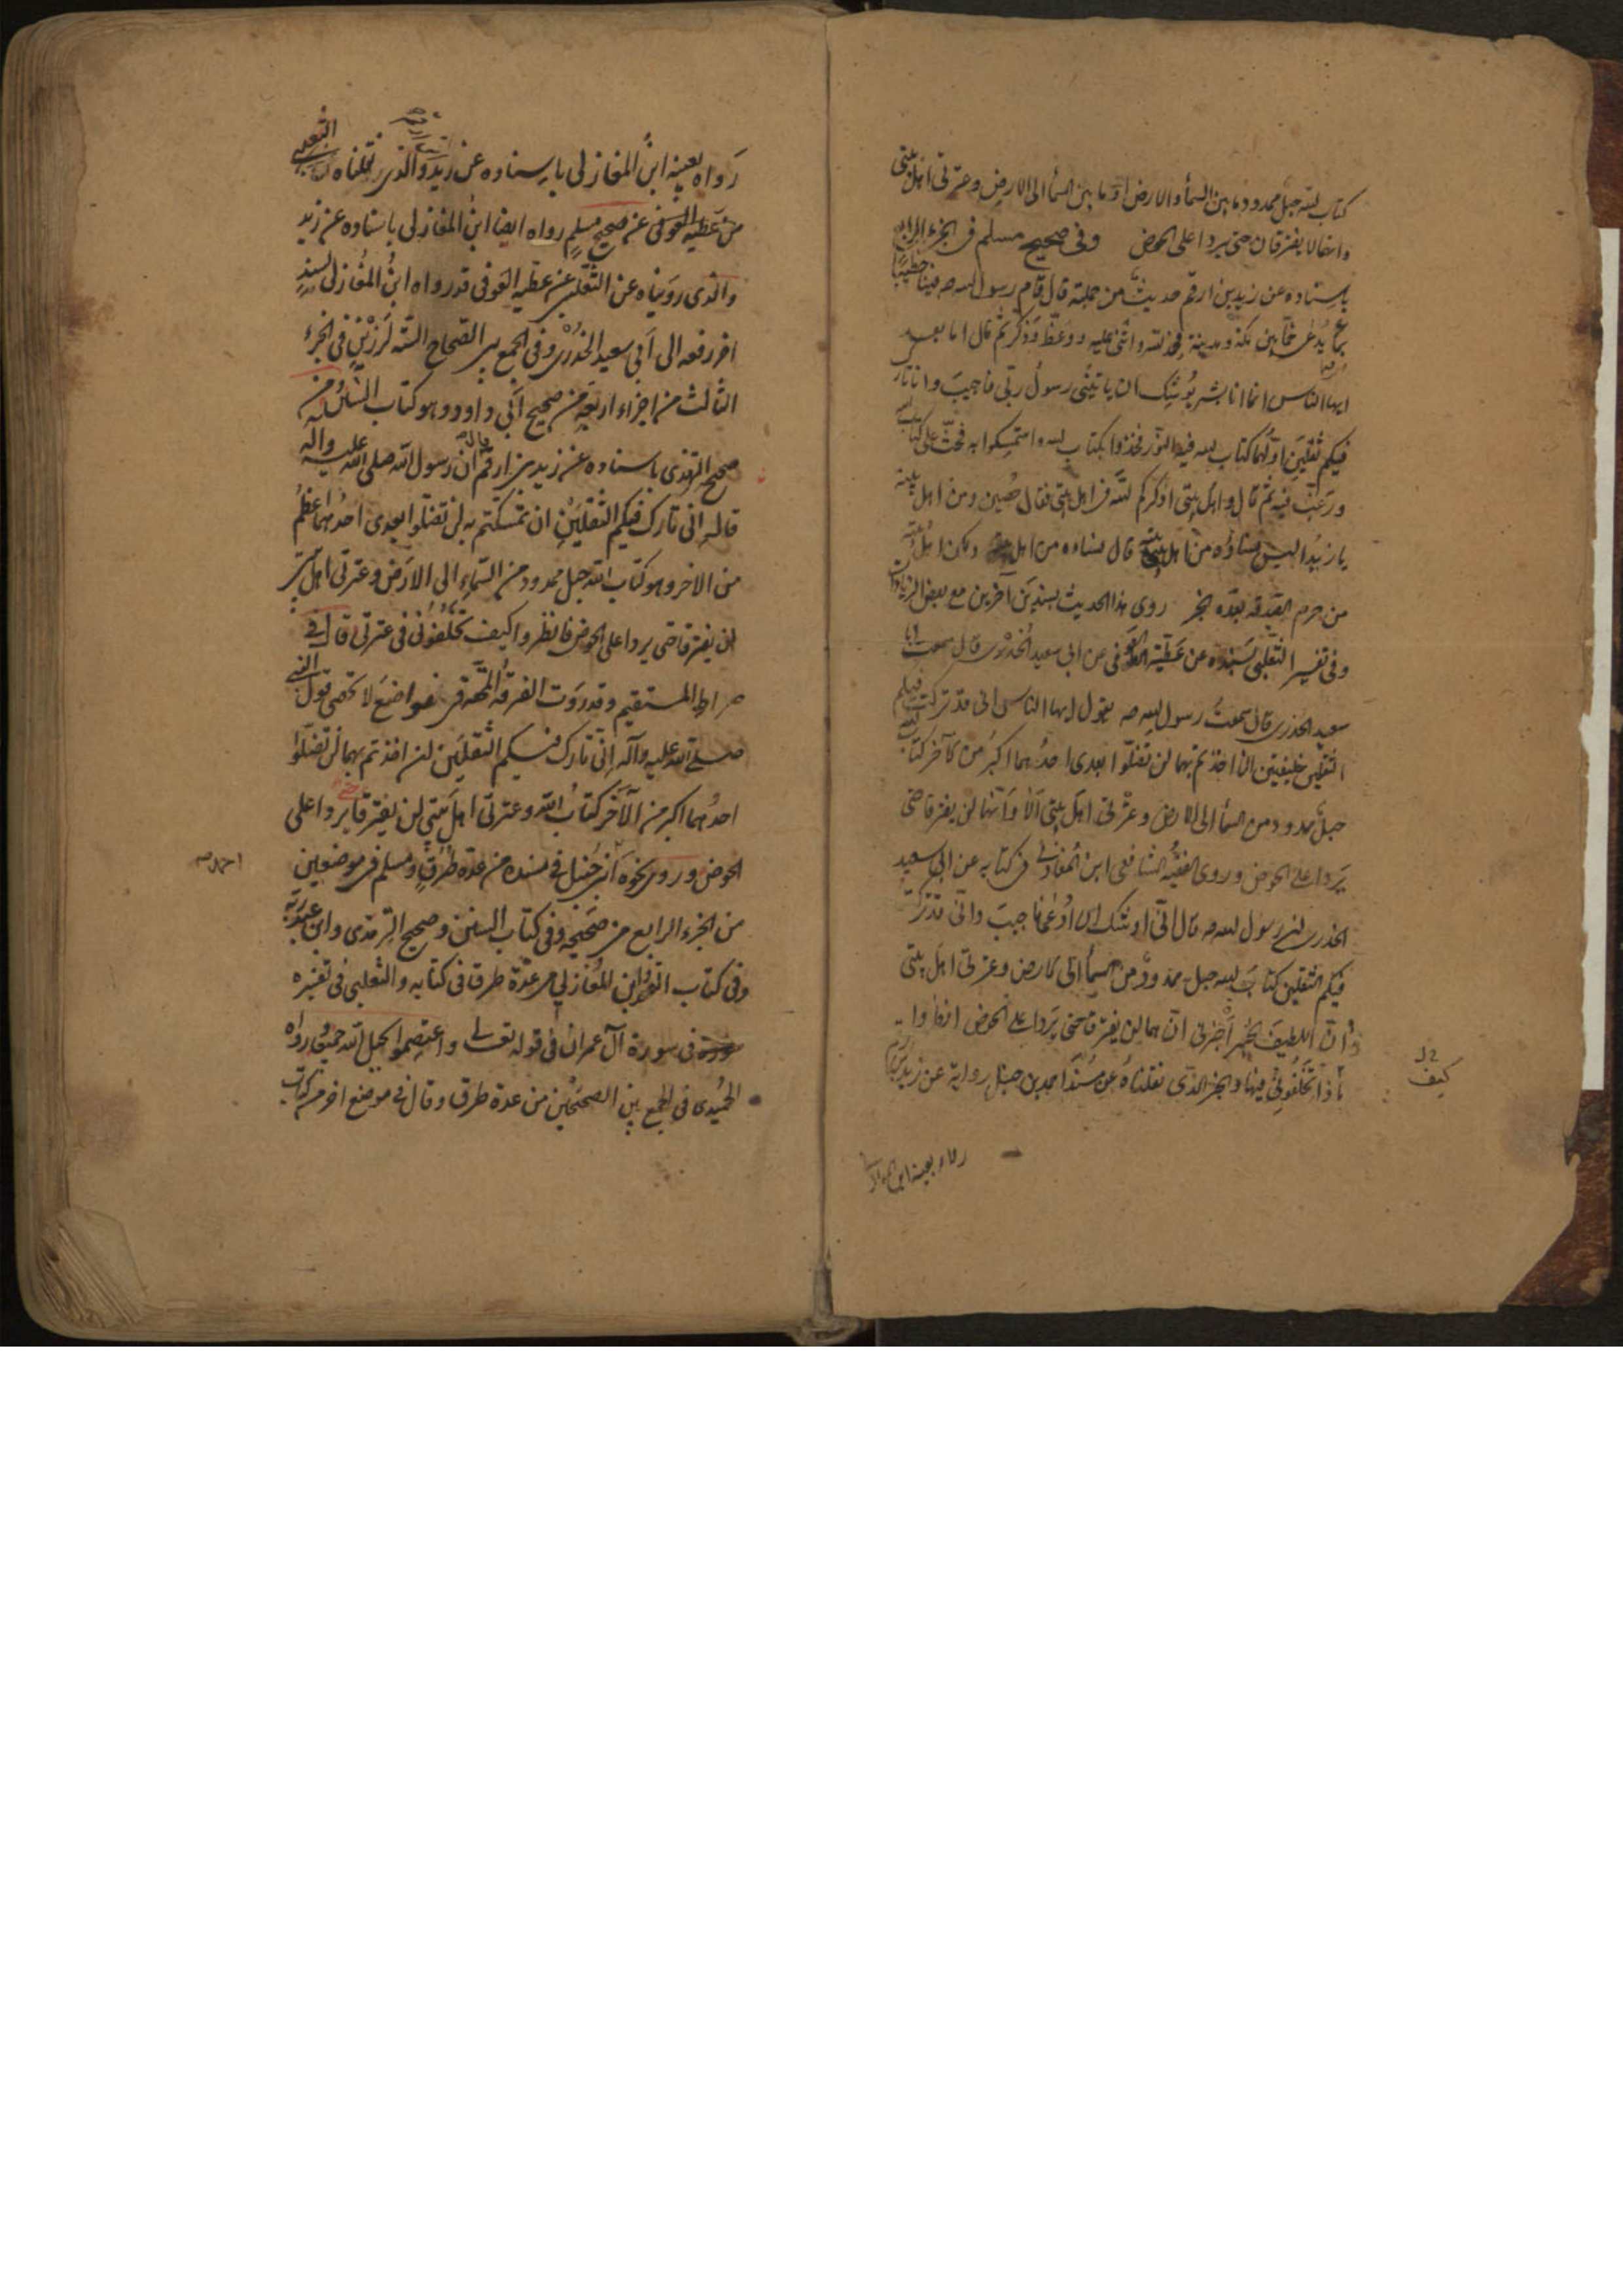 كتاب الله حبل ممدود ما بين السمأ والارض او ما بين السمأ الى الارض وعترتى اهل بيتى
وانهما لا يفترقان حتى يردا على الحوض وفى صحيح مسلم فى الجزء الرابع
باسناده عن زيد بن ارقم حديث من جملته قال قام رسول الله صه فينا خطيبًا
بماء يُدعى خمًّا بين مكة ومدينة فحمد الله واثنى عليه ووعظ وذكر ثم قال اما بعد
ايها الناس انما انا بشر يُوشك ان ياتينى رسولُ ربّى فاجيبَ وانا تارك
فيكم ثقلينِ اوّلُهما كتاب الله فيه النّور فخذوا بكتاب الله واستمسكوا به فحثّ على كتاب الله
ورغّب فيه ثم قال واهل بيتى اُذكّركم اللهَ فى اهل بيتى فقال حُصين ومن اهل بيته
يا زيدُ اليس نساؤه من اهل بيته قال نساءه من اهل بيته ولكن اهلُ بيته
من حرم الصدقه بعده الخبر روى هذا الحديث بسندين آخرين مع بعض الزيادات
وفى تفسير الثعلبى بسنده عن عطيّة العوفى عن ابى سعيد الخدرى قال سمعت ابا
سعيد الخدرى قال سمعتُ رسول الله صه يقول ايها الناس انى قد تركت فيكم
الثقلين خليفتين ان اخذتم بهما لن تضلّوا بعدى احدُهما اكبرُ من الآخر كتاب الله
حبلٌ ممدود من السمأ الى الارض وعترتى اهل بيتى اَلا وانّهما لن يفترقا حتى
يردا على الحوض وروى الفقيه الشافعى ابن المغازلى فى كتابه عن ابى سعيد
الخدرى ان رسول الله صه قال انّى اوشك ان اُدعٰى فاجيبَ وانّى قد تركت
فيكم الثقلين كتابَ الله حبل ممدودٌ من السمأ الى الارض وعترتى اهل بيتى
وانّ اللطيفَ الخبير اَخبرنى انّهما لن يفترقا حتى يَردا على الحوض انظروا
ماذا تَخلُفُونى فيهما والخبر الذى نقلناهُ عن مُسنَد احمد بن حنبل رواية عن زيد بن ارقم
ل
كيف
رواه بعينه ابن المغازلى
رَواه بعينه ابنُ المغازلى باسناده عن زيد والذى نقلناه الثعلبى
من عطيه العوفى عن صحيح مسلمٍ رواه ايضا ابنُ المغازلى باسناده عن زيد
والذى رويناه عن الثّعلبى عن عطيه العوفى قد رواه ابنُ المُغازلى بسندٍ
اخر رفعه الى اَبى سعيد الخُدْرى وفى الجمع بين الصّحاح السّته لرَزْينٍ فى الجزء
الثالث من اجزاء اربعةٍ من صحيح اَبى داوود وهو كتاب السُّنن ومن
صحيح الترمذى باسناده عن زيد بن ارقم قال انّ رسول الله صلى الله عليه واله
قال انى تارك فيكم الثقلَيْنِ ان تمسكتم به لن تضلّوا بعدى احدُهما اعظمُ
من الاخر وهو كتاب الله حبل ممدود من السّماء الى الارَض وعترتى اهل بيتى
لن يفترقا حتى يردا على الحوض فانظروا كيف تخلُفُونى فى عترتى قال فى
صراط المستقيم وقد رَوَت الفرقُ المُحقّه فى مواضعَ لا تحصى قولَ النبى
صلى الله عليه وآله انّى تارك فيكم الثقلَين لن اخذتم بهما لن تضلّوا
احدُهما اكبر من الآخَر كتابُ الله وعترتى اهل بَيتى لن يفترقا حتى يردا على
الحوض وروى نحوه ابن حَنبل فى مسنده من عدّة طُرُقٍ ومسلم فى موضعين
من الجزء الرابع من صحيحه وفى كتاب السنن وصحيح الترمذى وابن عبدربه
وفى كتاب العقد وابن المُغازلى من عدّة طرق فى كتابه والثعلبى فى تفسيره
فى سورة آل عمران فى قوله تعالى واعتصِموا بحبل الله جميعا رواه
الحُميدى فى الجمع بين الصحيحَيْن من عدة طرق وقال فى موضع اخر من كتاب